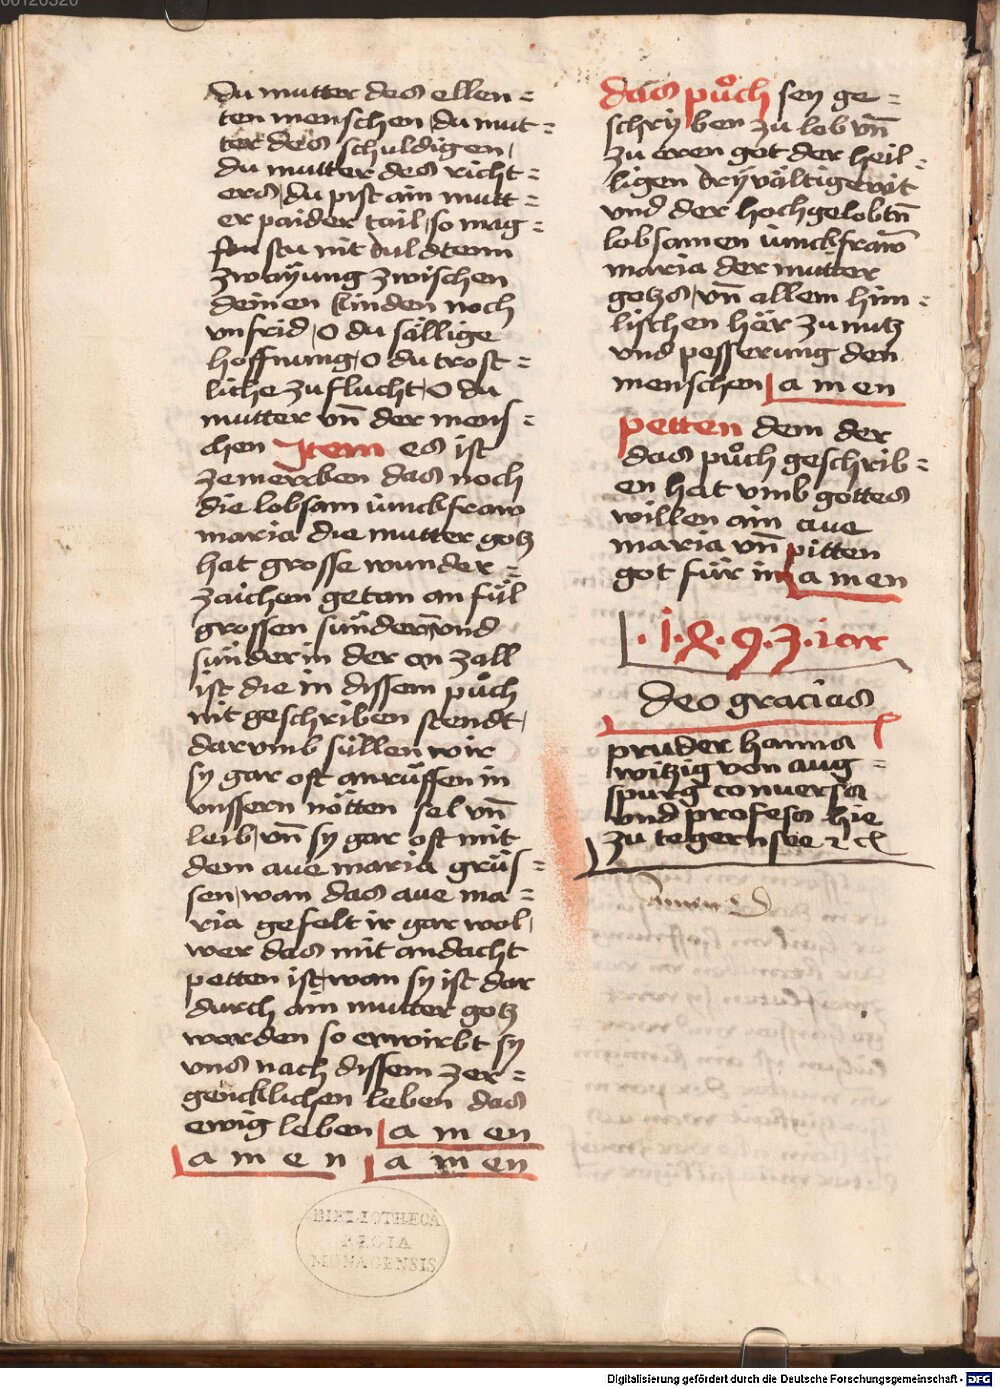 du mutter des ellen=
ten menschen, du mut=
ter des schuldigen,
du mutter des richt=
ers, du pist ain mutt=
er paider tail, so mag=
stu nit duldtenn
zwayung zwischen
deinen kinden noch
vnfrid, O du sällige
hoffnung, O du trost=
liche zuflucht, O du
mutter vn̄ der mens=
chen Item es ist
zemercken das noch
die lobsam iunckfraw
maria die mutter gotz
hat grosse wunder=
zaichen getan an fül
grossen sünder vnd
sünderin der on zall
ist die in dissem půch
nit geschriben stendt,
darvmb süllen wir
sy gar oft anrüffen in
vnssern nötten sel vn̄
leib, vn̄ sy gar oft mit
dem aue maria grüs=
sen, wan das aue ma=
ria gefelt ir gar wol,
wer das mit andacht
petten ist, wan sy ist dar
durch ain mutter gotz
worden so erwirbt sy
vns nach dissem zer=
gencklichen leben das
ewig leben amen
amen amen
BIBLIOTHECA
REGIA
MONACENSIS
das půch sey ge=
schryben zu lob vn̄
zu eren got der heil=
ligen dryvältigewit
vnd der hochgelobtn̄
lobsamen iunckfraw̄
maria der mutter
gotzs, vn̄ allem him=
lischen här zu nutz
vnd pesserung den
menschen amen
petten dem der
das půch geschrib=
en hat vmb gottes
willen ain aue
maria vn̄ pitten
got für in amen
.1.8.9.3.iar
deo gracias
pruder hanns
witzig von aug=
spurg conuerss
vnd profess hie
zu tegernsee ⁊ c̄
00120320
Digitalisierung gefördert durch die Deutsche Forschungsgemeinschaft - DFG